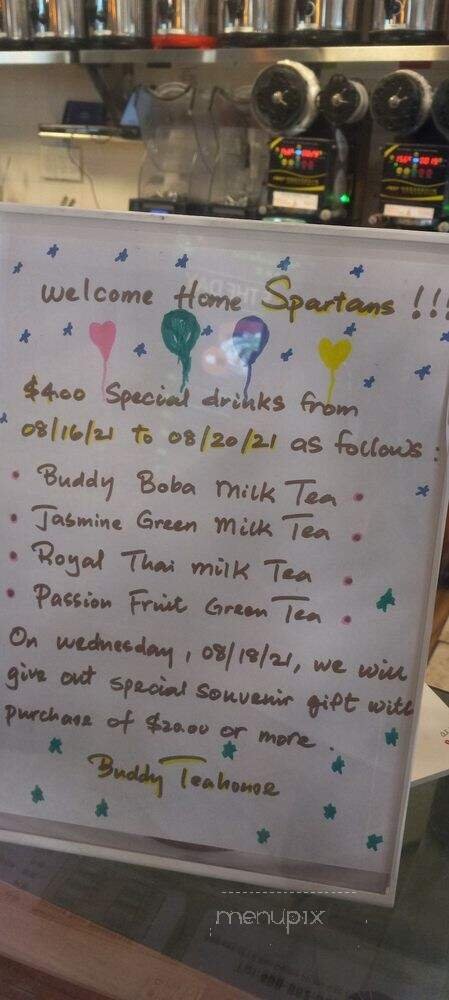 Welcome Home Spartans !!!
$4.00 Special drinks from
08/16/21 to 08/20/21 as follows:
• Buddy Boba Milk Tea •
• Jasmine Green Milk Tea •
• Royal Thai milk Tea •
• Passion Fruit Green Tea •
On wednesday, 08/18/21, we will
give out special souvenir gift with
purchase of $20.00 or more.
Buddy Teahouse
menupix